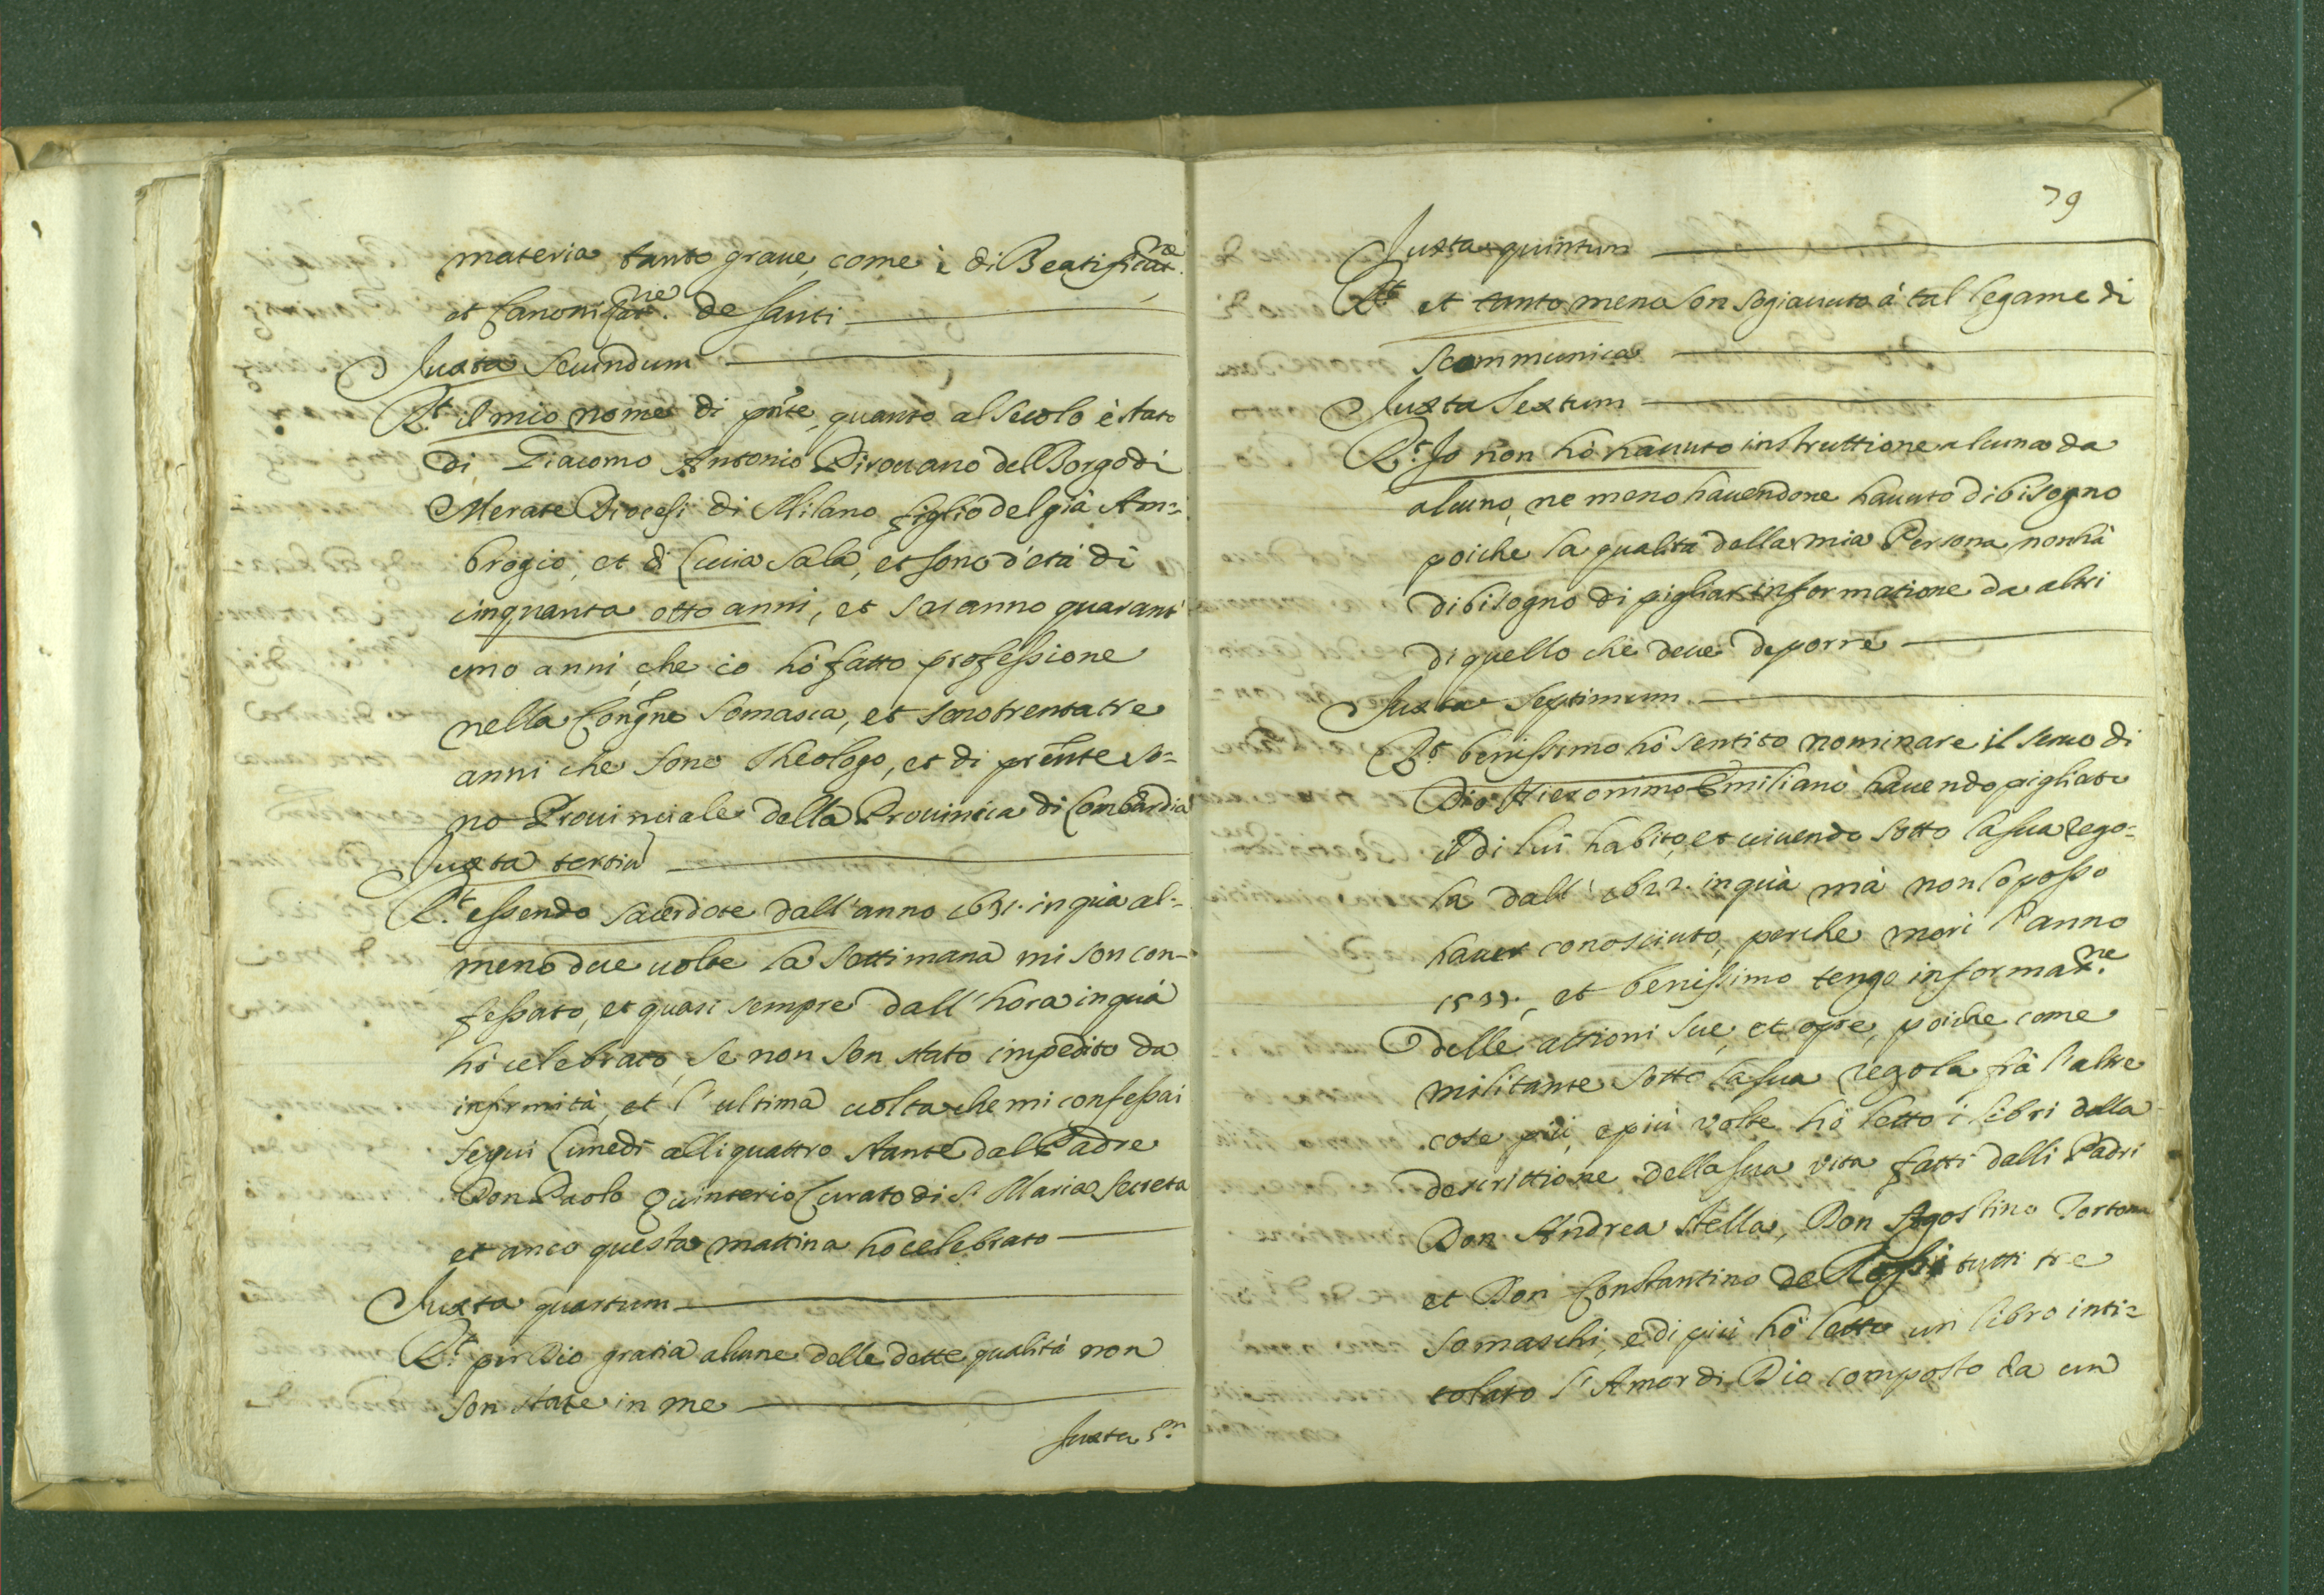 materia tanto graue, come è di Beatificat.ne
et Canonizat.ne de Santi
Iuxta secundum
R.t il mio nome di pñte, quanto al secolo è stato
di Giacomo Antonio Pirouano del Borgo di
Merate Diocesi di Milano figlio del già Am=
brogio, et di Lucia Sala, et sono d'età di
cinquanta otto anni, et saranno quarant'
uno anni, che io hò fatto professione
nella Congñe Somasca, et sono trenta tre
anni che sono Theologo, et di preñte so=
no Prouinciale della Prouincia di Lombardia
Iuxta tertiũ
R.t essendo sacerdote dall'anno 1631. in quà al=
meno due uolte la settimana mi son con=
fessato, et quasi sempre dall'hora in quà
hò celebrato, se non son stato impedito da
infirmità, et l'ultima uolta che mi confessai
seguì Lunedì alli quattro stante dal Padre
Don Paolo Quinterio Curato di S. Maria Secreta
et anco questa mattina hò celebrato
Iuxta quartum
R.t per Dio gratia alcune delle dette qualità non
son state in me
Iuxta 5.m
79
Iuxta quintum
R.t et tanto meno son sogiaciuto à tal legame di
scommunica
Iuxta Sextum
R.t Io non hò hauuto instruttione alcuna da
alcuno, ne meno hauendone hauuto di bisogno
poiche la qualità della mia Persona non hà
di bisogno di pigliar informatione da altri
di quello che deue deporre
Iuxta Septimum
R.t benissimo hò sentito nominare il seruo di
Dio Hieronimo Emiliano hauendo pigliato
il di lui habito, et uiuendo sotto la sua rego=
la dall' 1622. in quà mà non lo posso
hauer conosciuto, perche morì l'anno
1537., et benissimo tengo informat.ne
delle attioni sue, et opre, poiche come
militante sotto la sua regola frà l'altre
cose più, e più volte hò letto i libri della
descrittione della sua vita fatti dalli Padri
Don Andrea Stella, Don Agostino Tortora
et Don Constantino de Rossi tutti tre
somaschi, e di più hò letto un libro inti=
tolato l'Amor di Dio composto da un